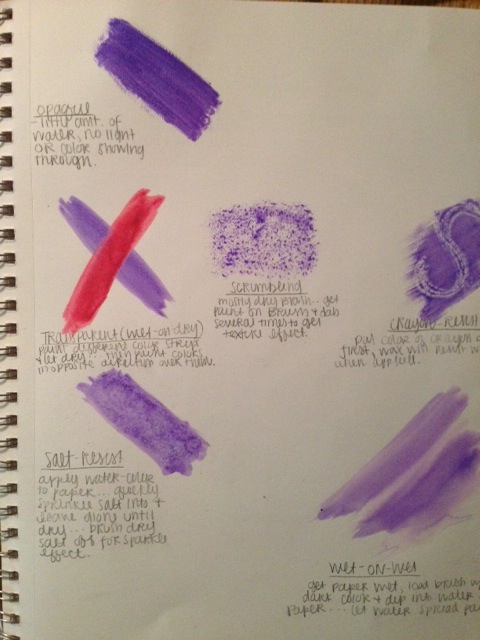 opaque
- little amt. of
water, no light
or color showing
through.
Transparent (wet-on-dry)
paint different color strips
+ let dry... then paint colors
in opposite direction over them.
Scrumbling
mostly dry brush... get
paint on brush + dab
several times to get
texture effect.
crayon-resist
put color of crayon
first, wax will resist
when applied.
Salt-Resist
apply water-color
to paper... quickly
sprinkle salt into +
leave alone until
dry... brush dry
salt off for sparkle
effect.
Wet-on-wet
get paper wet, load brush
dark color + dip into water
paper... let water spread